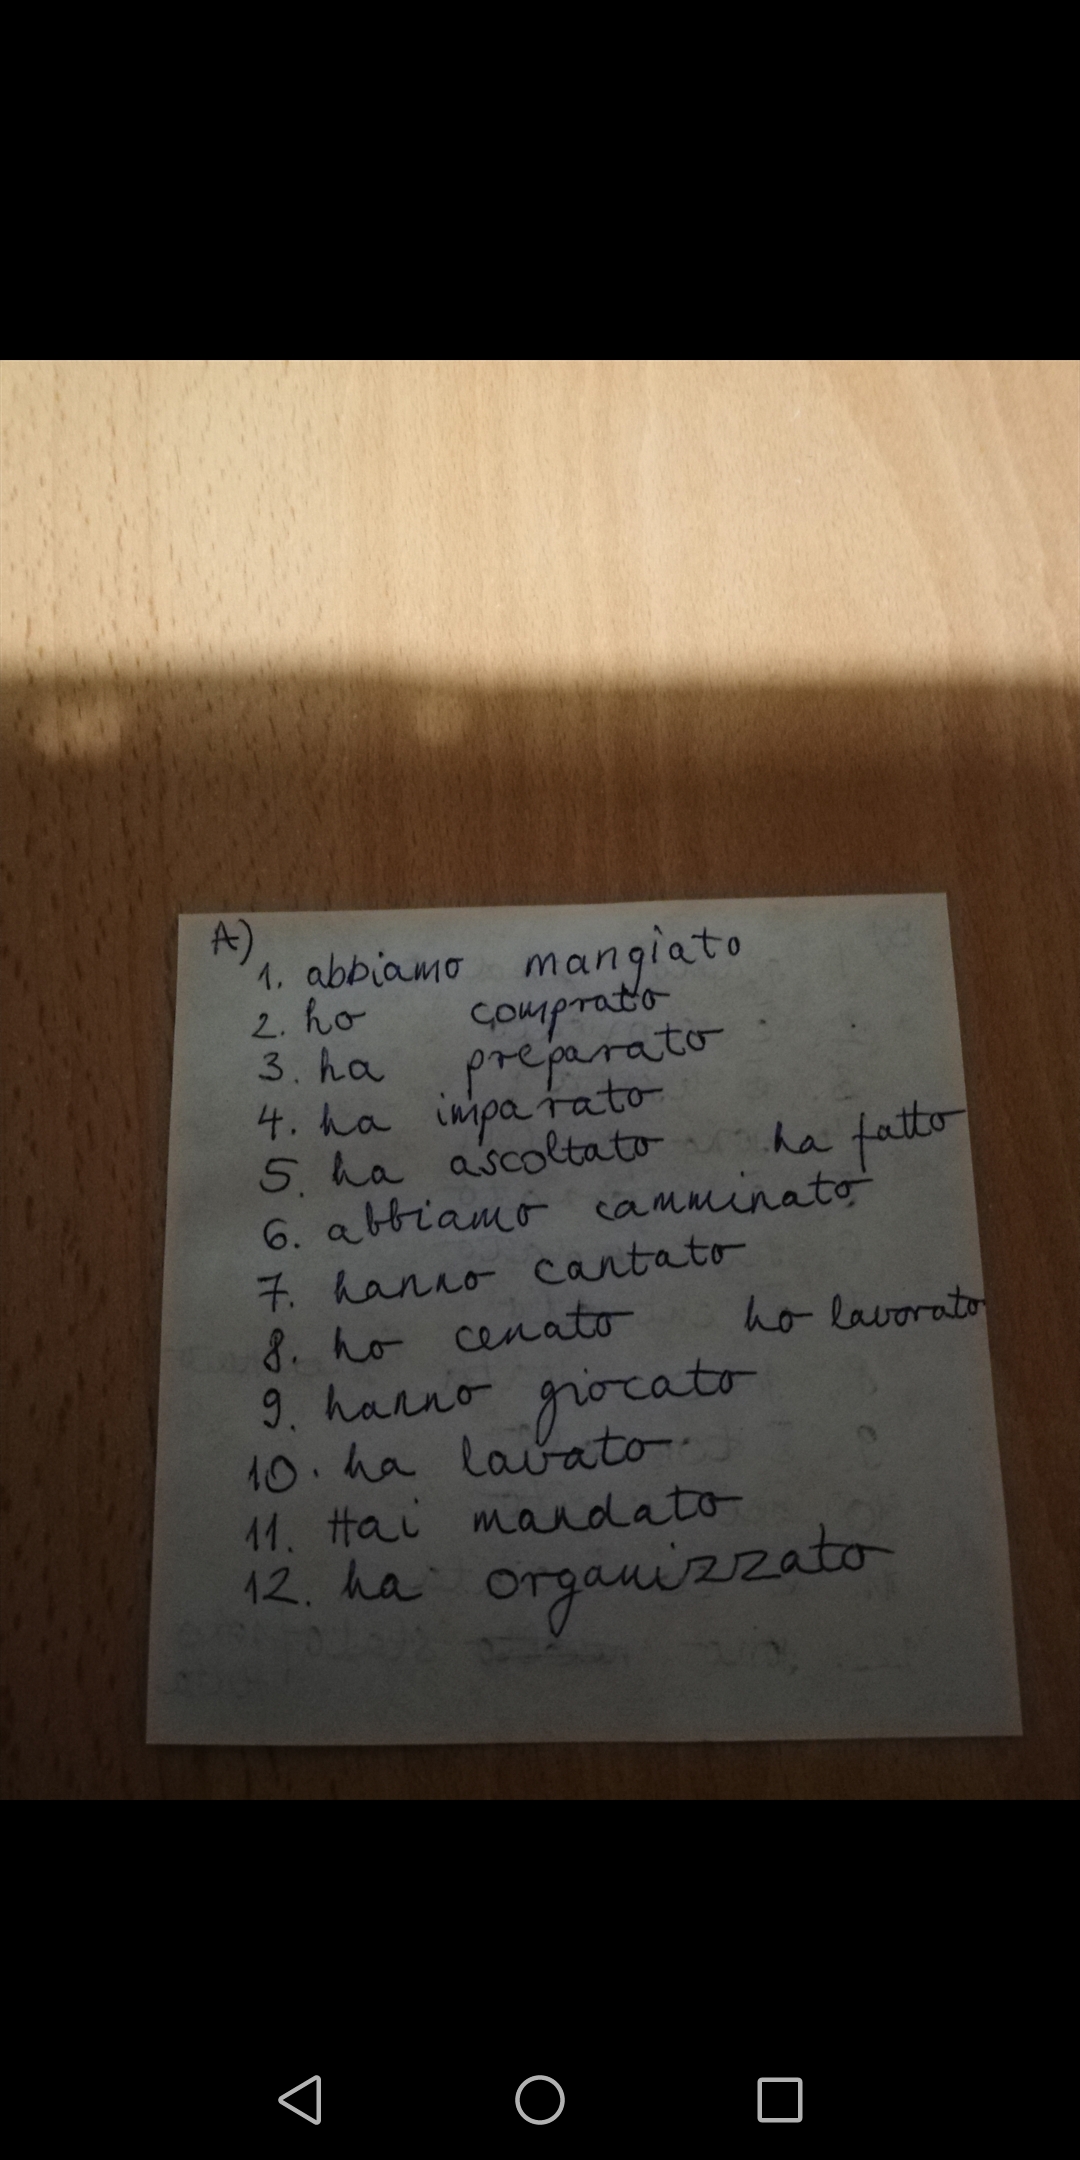 A)
1. abbiamo mangiato
2. ho comprato
3. ha preparato
4. ha imparato
5. ha ascoltato ha fatto
6. abbiamo camminato
7. hanno cantato
8. ho cenato ho lavorato
9. hanno giocato
10. ha lavato
11. Hai mandato
12. ha organizzato